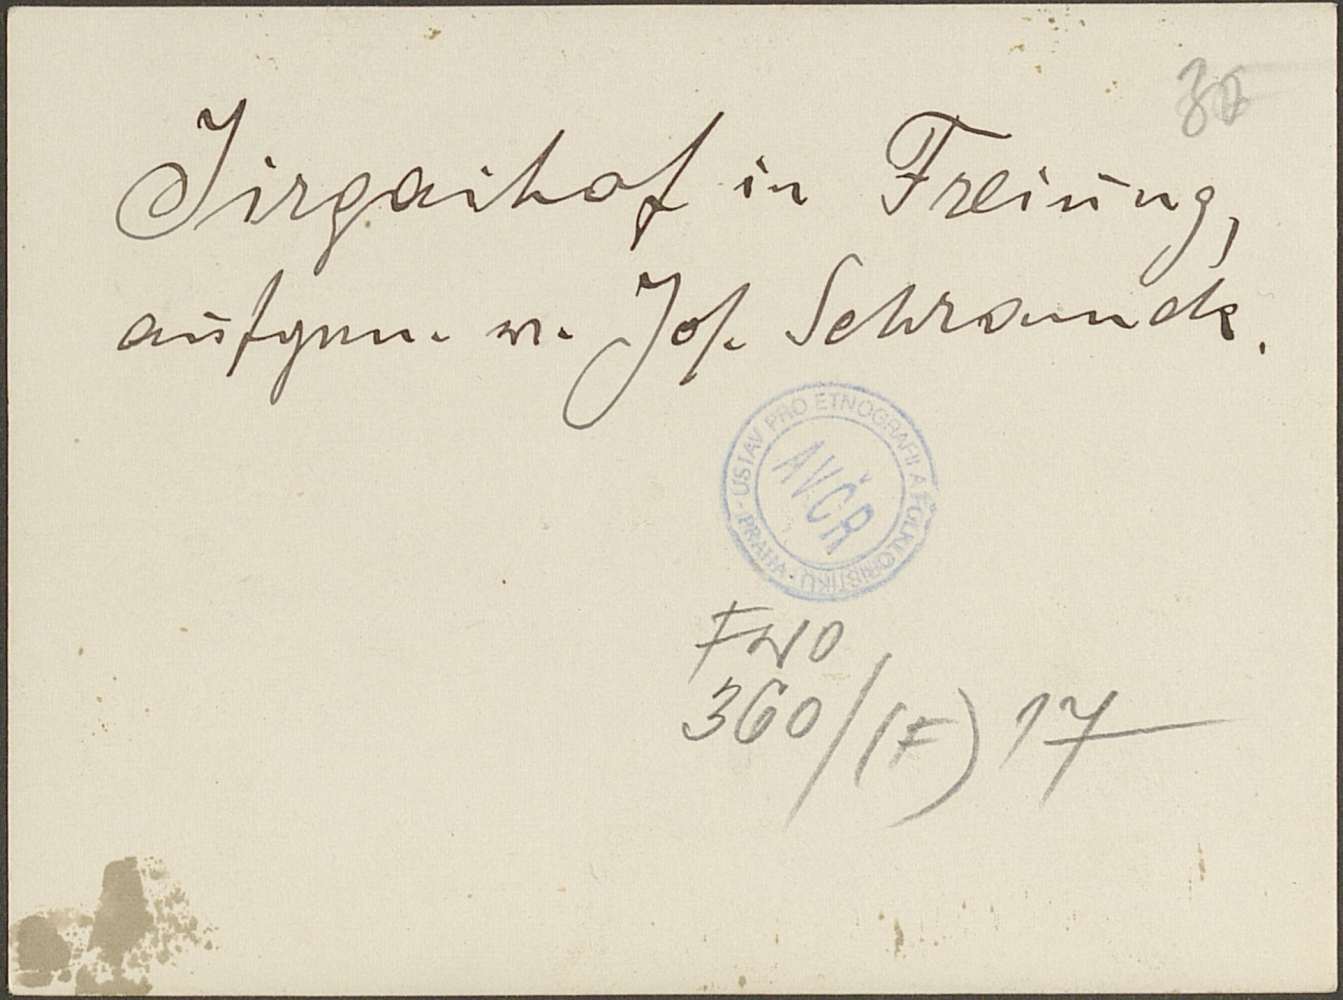 30
Jirgaihof in Freiung,
aufgen. v. Jos. Schramek.
ÚSTAV PRO ETNOGRAFII A FOLKLORISTIKU · PRAHA ·
AVČR
FWO
360/(F) 17